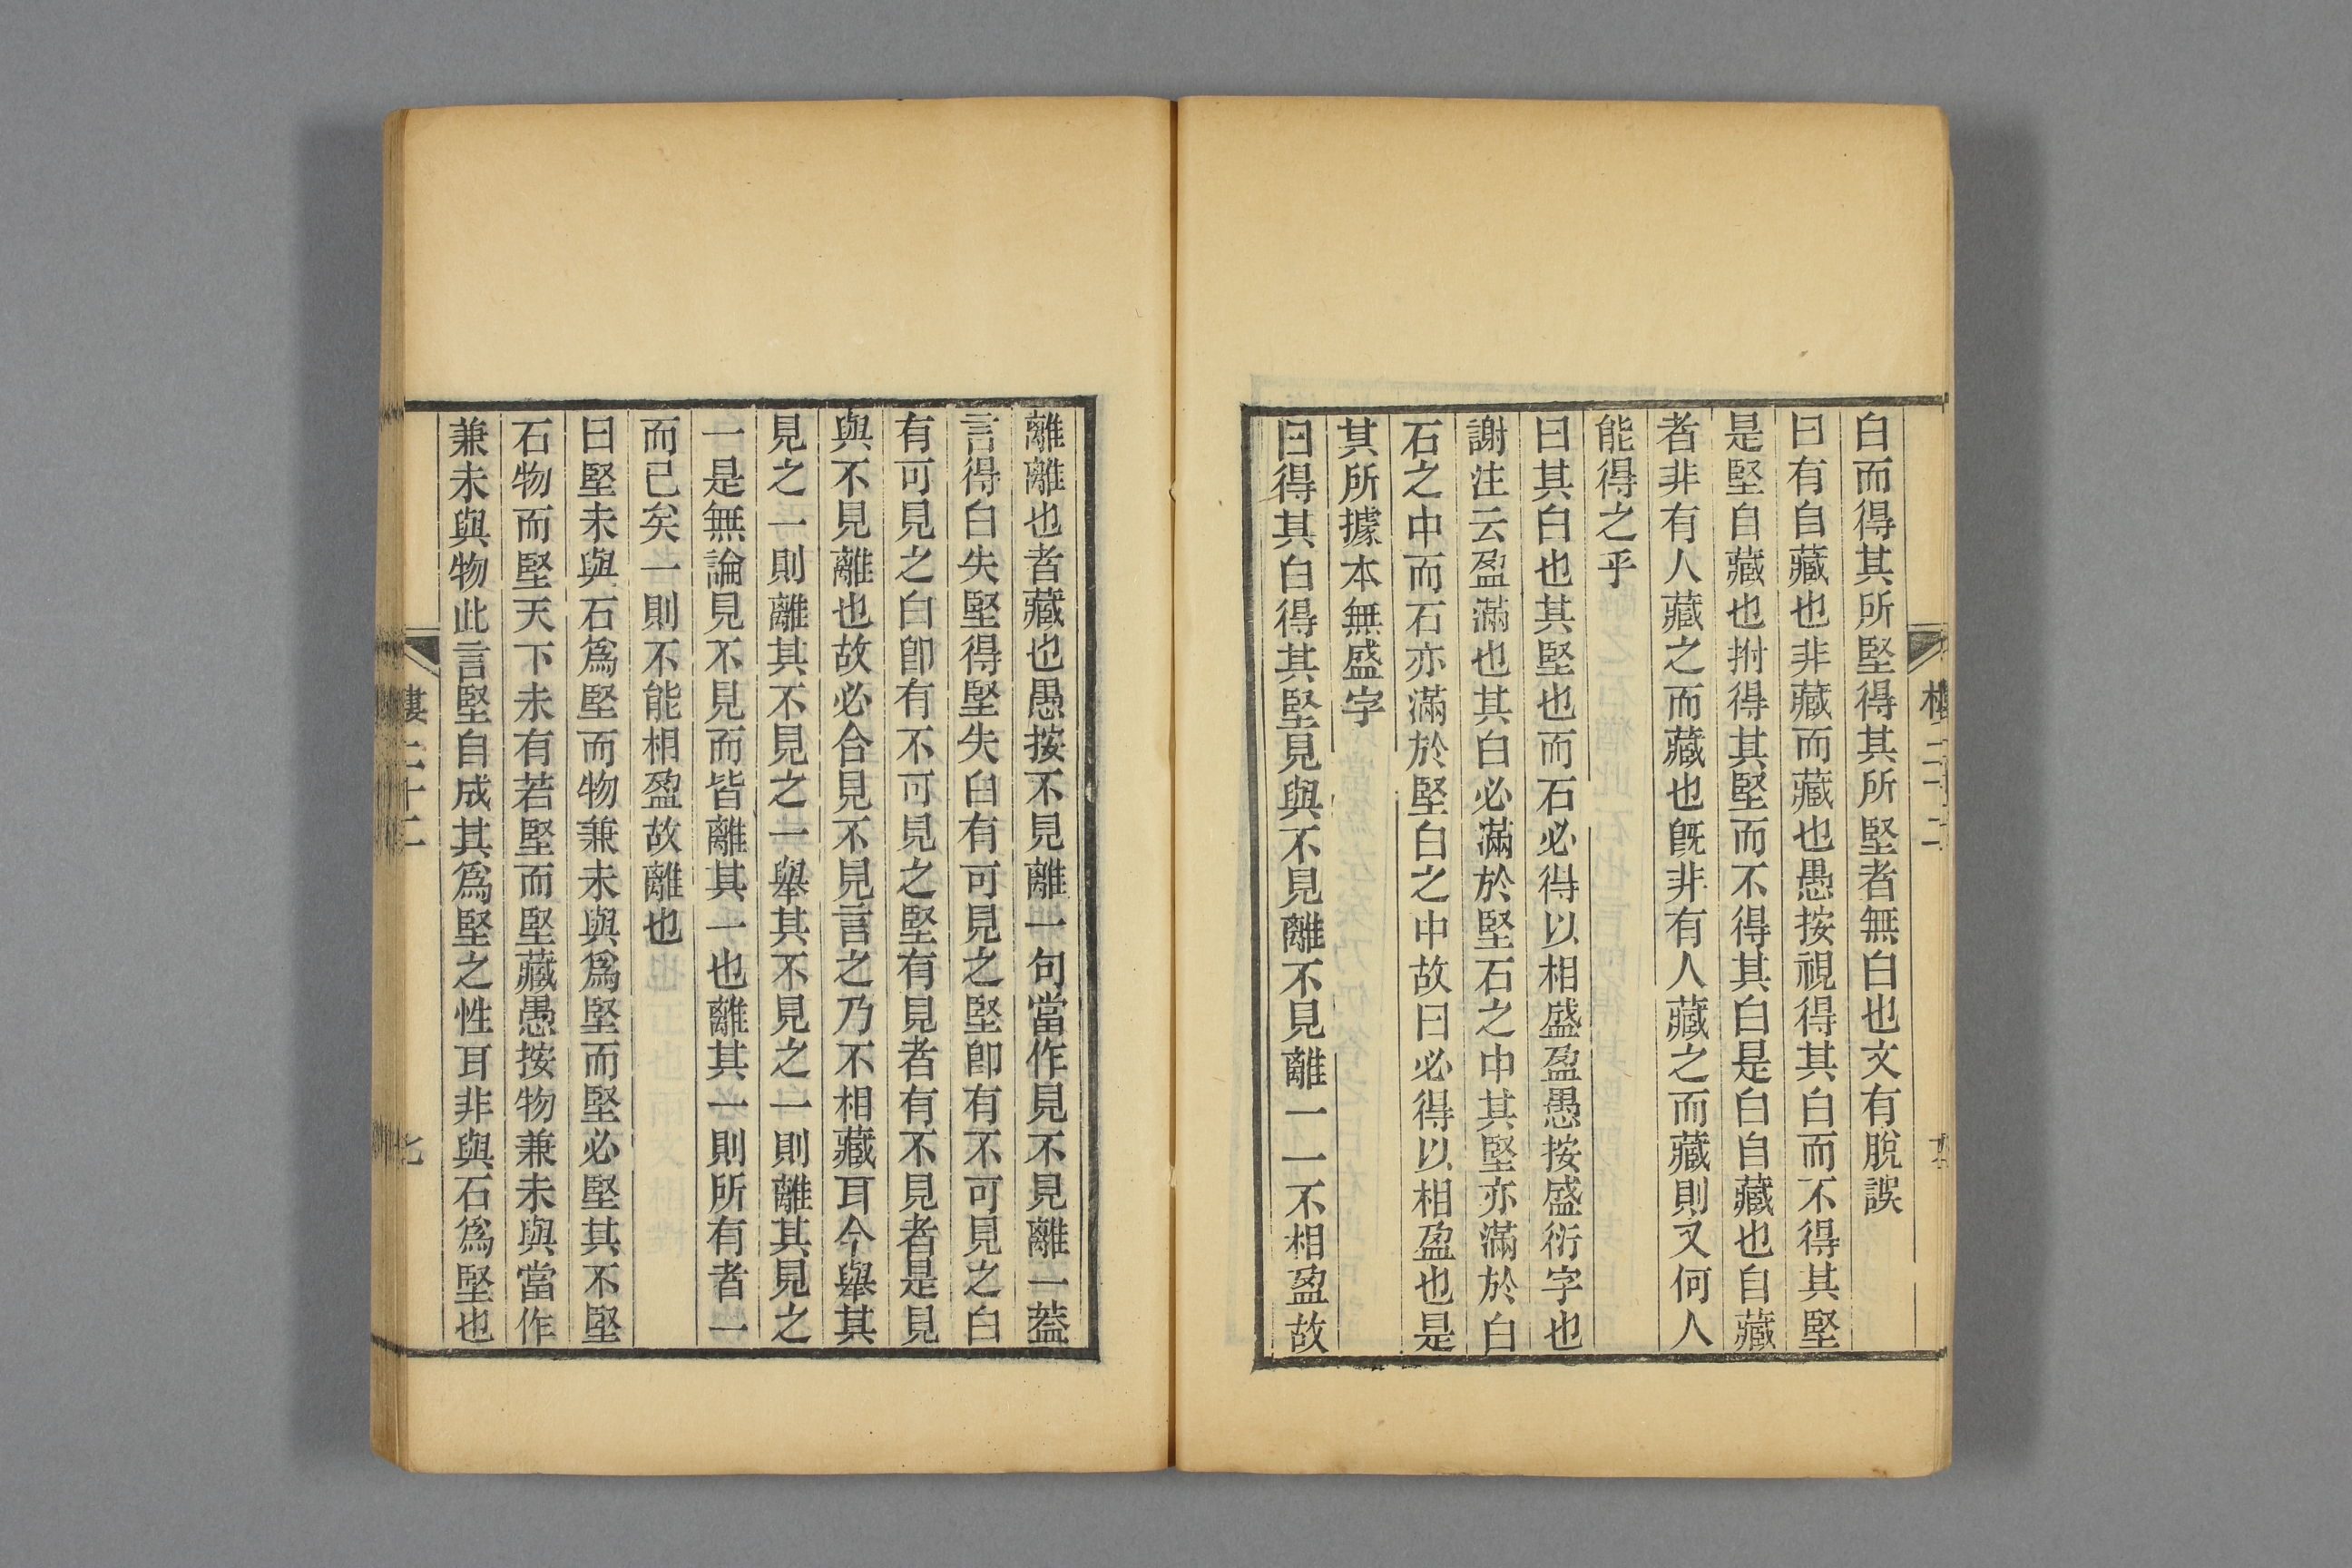 白而得其所堅得其所堅者無白也文有脫誤
曰有自藏也非藏而藏也愚按視得其白而不得其堅
是堅自藏也拊得其堅而不得其白是白自藏也自藏
者非有人藏之而藏也旣非有人藏之而藏則又何人
能得之乎
曰其白也其堅也而石必得以相盛盈愚按盛衍字也
謝注云盈滿也其白必滿於堅石之中其堅亦滿於白
石之中而石亦滿於堅白之中故曰必得以相盈也是
其所據本無盛字
曰得其白得其堅見與不見離不見離一一不相盈故
離離也者藏也愚按不見離一句當作見不見離一蓋
言得白失堅得堅失白有可見之堅卽有不可見之白
有可見之白卽有不可見之堅有見者有不見者是見
與不見離也故必合見不見言之乃不相藏耳今舉其
見之一則離其不見之一舉其不見之一則離其見之
一是無論見不見而皆離其一也離其一則所有者一
而已矣一則不能相盈故離也
曰堅未與石爲堅而物兼未與爲堅而堅必堅其不堅
石物而堅天下未有若堅而堅藏愚按物兼未與當作
兼未與物此言堅自成其爲堅之性耳非與石爲堅也
樓二十二
七